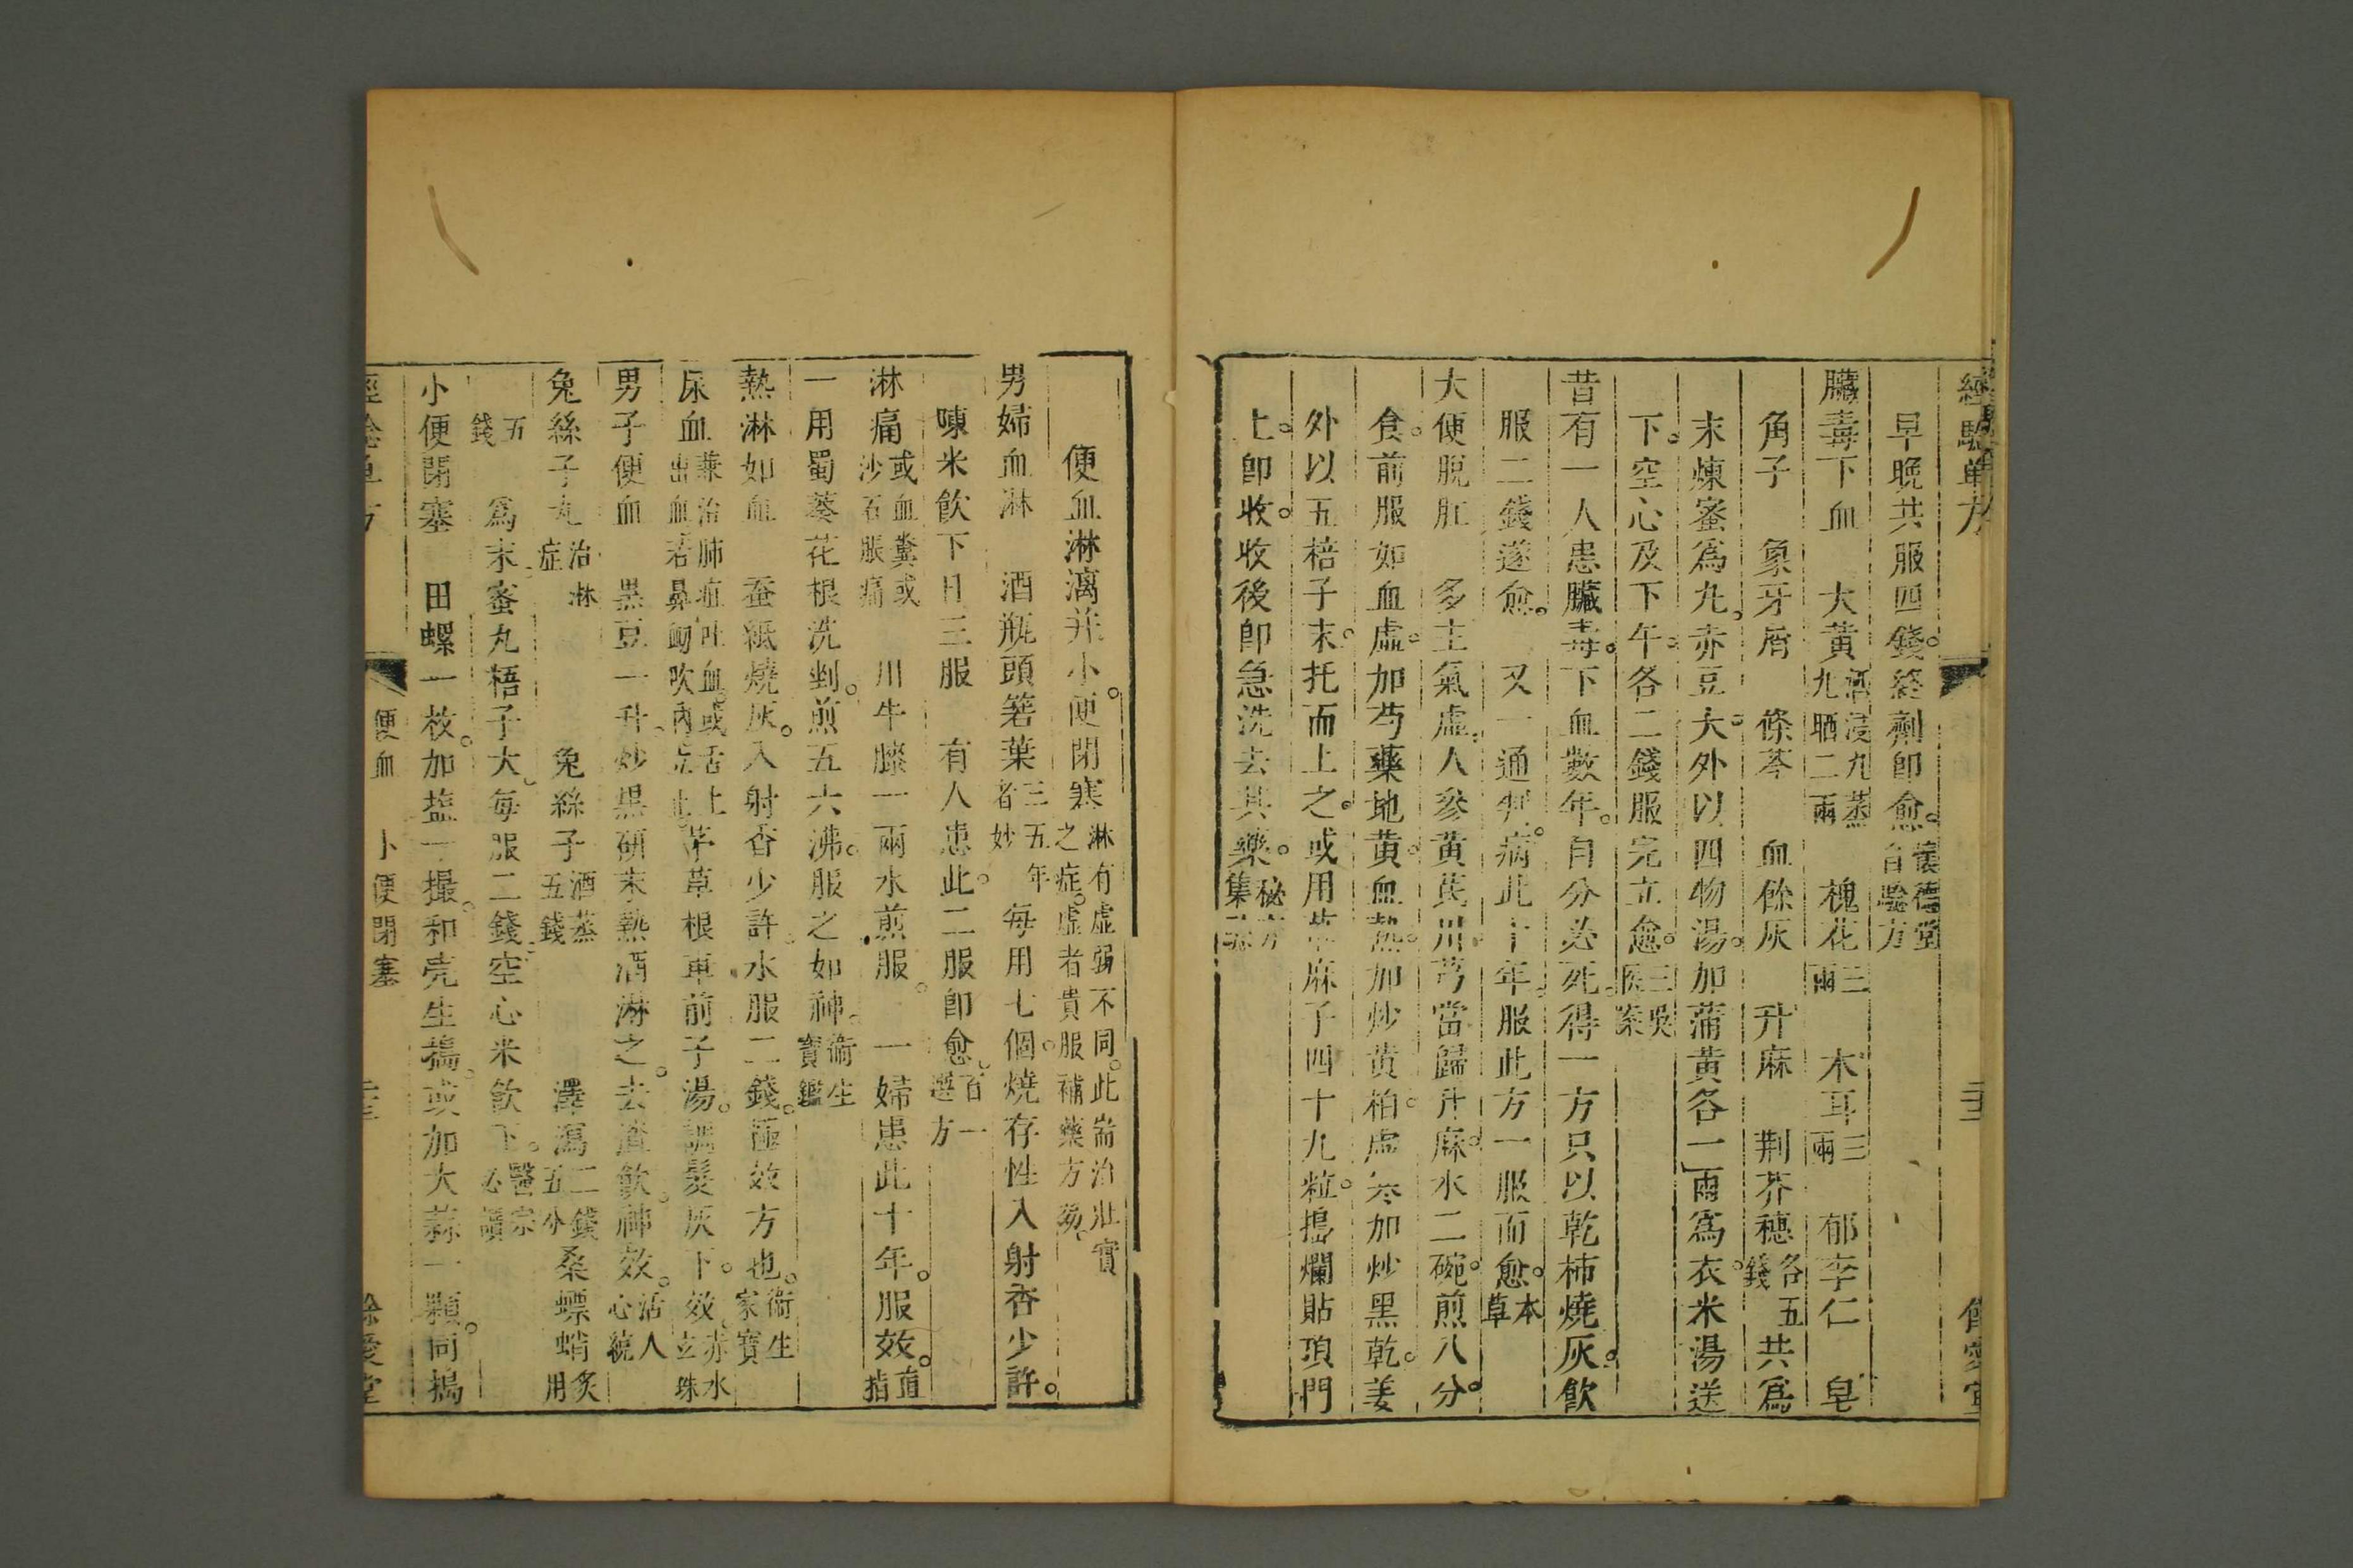 經驗單方
早晚共服四錢。終劑即愈。懷德堂自驗方
臟毒下血　大黃酒浸九蒸九晒二兩　槐花三兩　木耳三兩　郁李仁　皂
角子　象牙屑　條芩　血餘灰　升麻　荆芥穗各五錢共爲
末煉蜜爲丸。赤豆大。外以四物湯。加蒲黃各一兩爲衣。米湯送
下。空心及下午。各二錢服完立愈。三吳医案
昔有一人患臟毒。下血數年。自分必死。得一方只以乾柿燒灰。飲
服二錢遂愈。又一通判。病此十年。服此方一服而愈。本草
大便脫肛　多主氣虛。人參黃芪川芎當歸升麻。水二碗。煎八分。
食。前服如血虛。加芍藥地黃。血熱。加炒黃柏。虛寒加炒黑乾。姜
外以五棓子末。托而上之。或用麻子四十九粒。搗爛貼頂門
上。卽收。收後卽急洗去其藥。秘方集
便血淋漓并小便閉塞淋有虛弱不同。此崙治壯實之症。虛者貴服補藥方
男婦血淋　酒瓶頭箬葉三五年者妙每用七個。燒存性入射香少許。
陳米飲下日三服　有人患此。二服卽愈。百一選方
淋痛或血糞或沙石脹痛　川牛膝一兩水煎服。一婦患此十年。服效。直指
一用蜀葵花根洗剉。煎五六沸。服之如神。衛生寶鑑
熱淋如血　蚕紙燒灰。入射香少許。水服二錢。極效方也。衛生家寶
尿血兼治肺疽吐血。或舌上出血若鼻衂吹內立止茅草根車前子湯。調髮灰下。效赤水玄珠
男子便血　黑豆一升。炒黑研末熱酒淋之。去渣飲。神效。活人心統
兔絲子丸治淋症　兔絲子酒蒸五錢　澤瀉二錢五分桑螵蛸炙用
五錢　爲末。蜜丸梧子大。每服二錢。空心米飲下。醫宗必讀
小便閉塞　田螺一枚。加塩一撮。和壳生搗。或加大蒜一顆。同搗
便血　小便閉塞